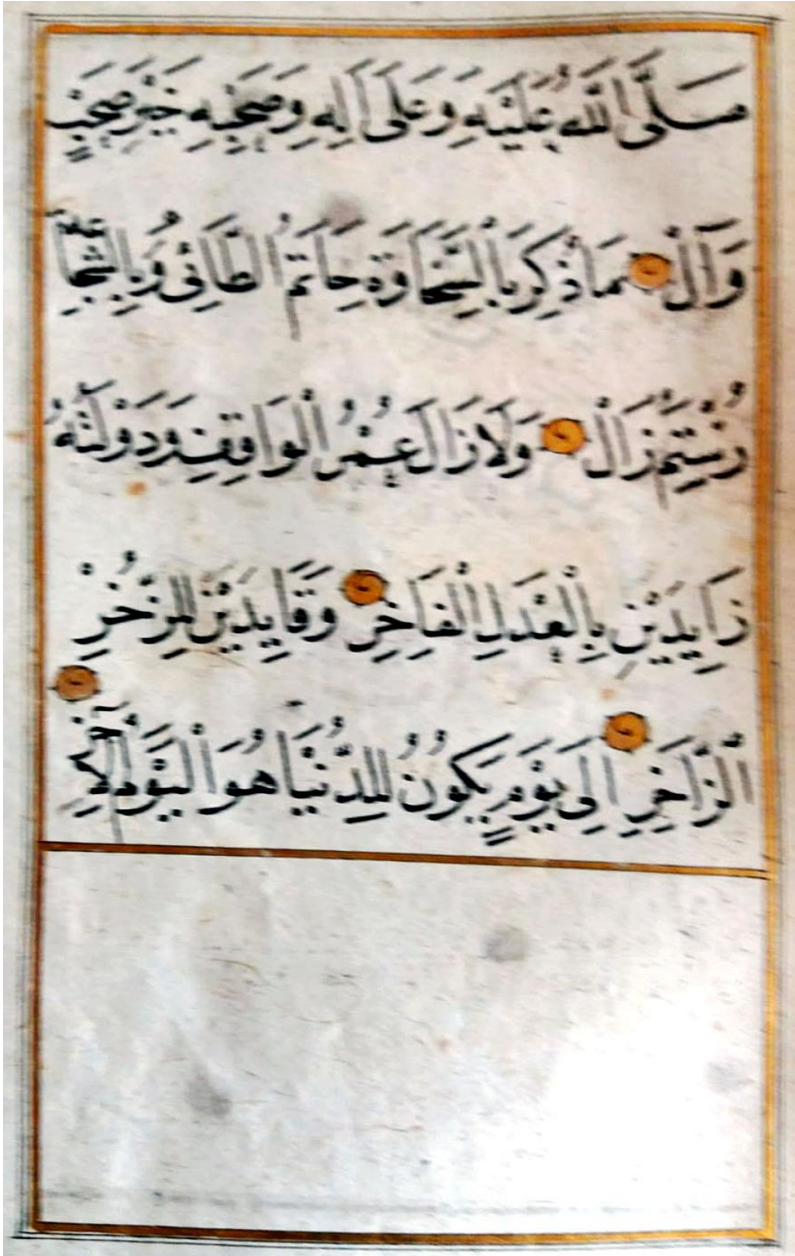 صَلَّى اللَّهُ عَلَيْهِ وَعَلَى آلِهِ وَصَحْبِهِ خَيْرِ صَحْبٍ
وَآلْ مَاذُكِرَ بِالْسَّخَاوَةِ حَاتَمُ الطَّائِى وَبِالشَّجَاعَةِ
رُسْتَمِ زَالْ وَلَازَالَ عُمْرُ الْوَاقِفِ وَدَوْلَتُهُ
زَايِدَيْنِ بِالْعَدَلِ الْفَاخِرِ وَقَايِدَيْنِ لِلزُّخْرِ
الْزَّاخِرِ اِلَى يَوْمٍ يَكُونُ لِلدُّنْيَا هُوَ الْيَوْمُ الْآخِرُ